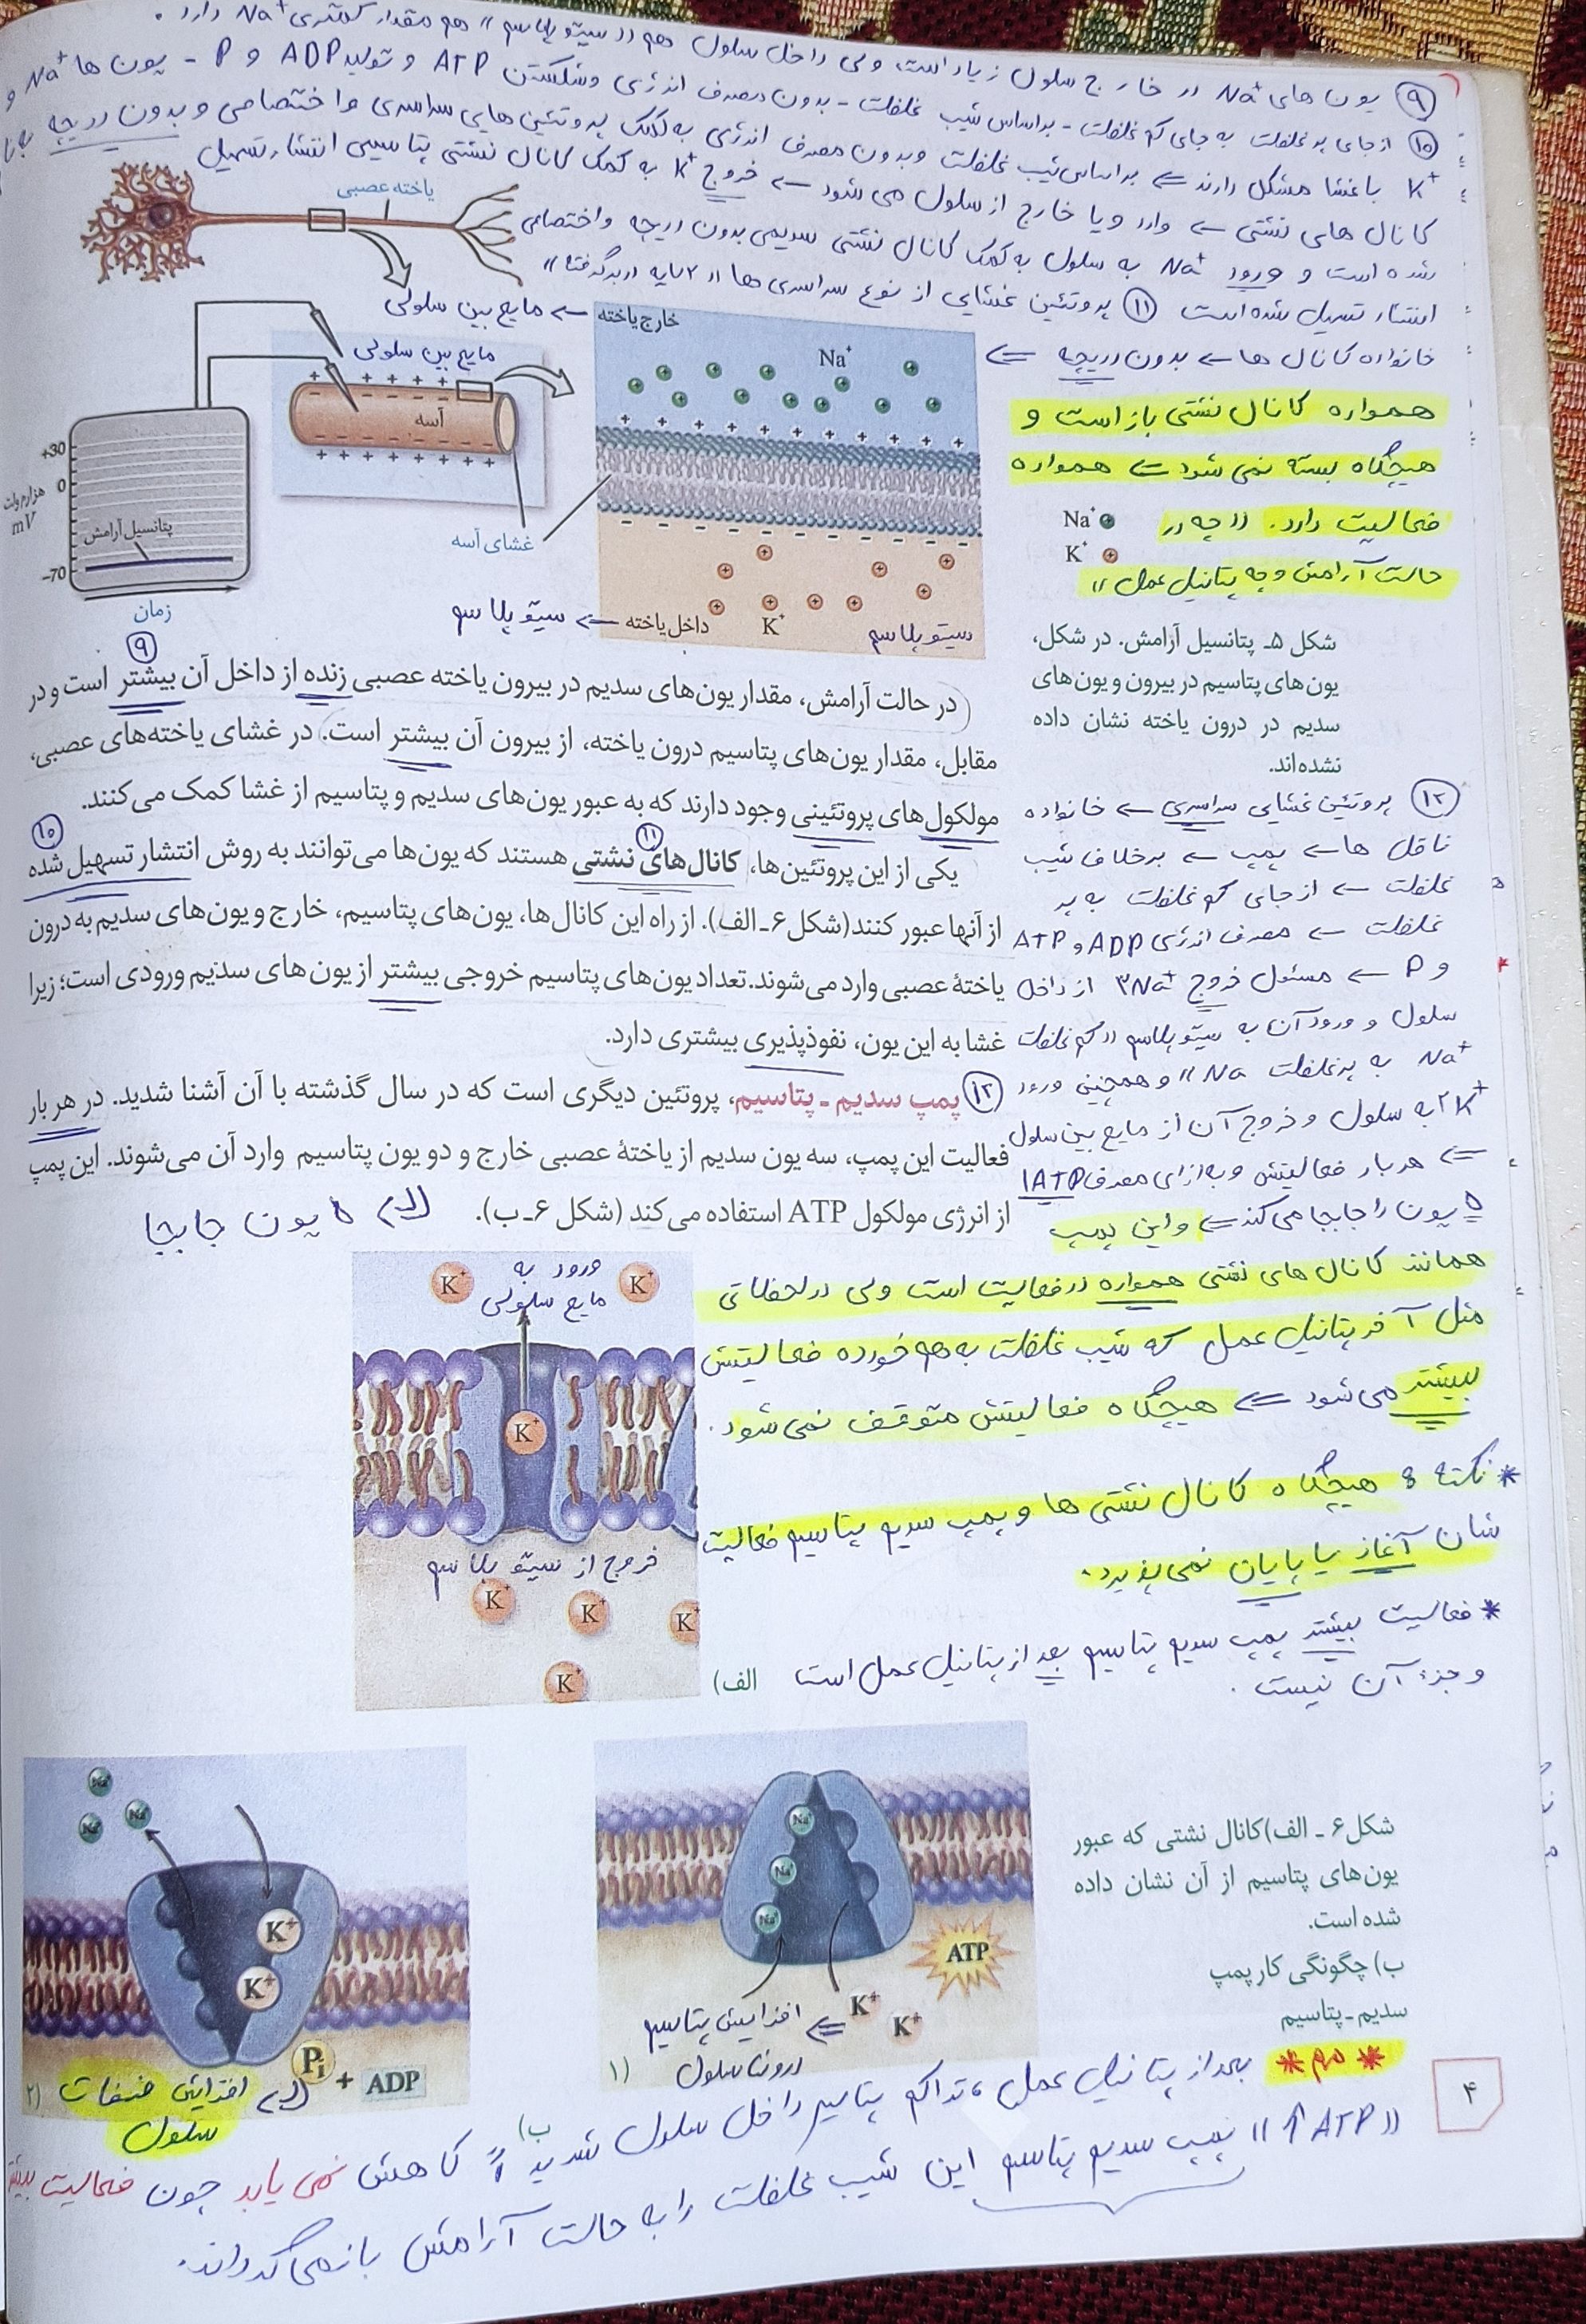 ۹ یون های Na⁺ در خارج سلول زیاد است ولی داخل سلول هم «سیتوپلاسم» هم مقدار کمتری Na⁺ دارد.
۱۰ از جای پر غلظت به جای کم غلظت - براساس شیب غلظت - بدون مصرف انرژی و شکستن ATP و تولید ADP و P - یون ها Na⁺ و
K⁺ با غشا مشکل دارند ⇐ براساس شیب غلظت و بدون مصرف انرژی به کمک پروتئین هایی سراسری و اختصاصی و بدون دریچه به نام
کانال های نشتی ← وارد و یا خارج از سلول می شود ← خروج K⁺ به کمک کانال نشتی پتاسیمی انتشار تسهیل
شده است و ورود Na⁺ به سلول به کمک کانال نشتی سدیمی بدون دریچه و اختصاصی
انتشار تسهیل شده است ۱۱ پروتئین غشایی از نوع سراسری ها
خانواده کانال ها ← بدون دریچه ⇐
همواره کانال نشتی باز است و
هیچگاه بسته نمی شود ← همواره
فعالیت دارد. «چه در
حالت آرامش و چه پتانسیل عمل»
Na⁺
K⁺
یاخته عصبی
مایع بین سلولی ←
خارج یاخته
Na⁺
مایع بین سلولی
آسه
غشای آسه
+30
0
-70
هزارم ولت
mV
پتانسیل آرامش
زمان
سیتوپلاسم ←
داخل یاخته
K⁺
سیتوپلاسم
شکل ۵ـ پتانسیل آرامش. در شکل،
یون‌های پتاسیم در بیرون و یون‌های
سدیم در درون یاخته نشان داده
نشده‌اند.
۹
در حالت آرامش، مقدار یون‌های سدیم در بیرون یاخته عصبی زنده از داخل آن بیشتر است و در
مقابل، مقدار یون‌های پتاسیم درون یاخته، از بیرون آن بیشتر است. در غشای یاخته‌های عصبی،
مولکول‌های پروتئینی وجود دارند که به عبور یون‌های سدیم و پتاسیم از غشا کمک می‌کنند.
۱۰
۱۱
یکی از این پروتئین‌ها، کانال‌های نشتی هستند که یون‌ها می‌توانند به روش انتشار تسهیل شده
از آنها عبور کنند (شکل ۶ـ الف). از راه این کانال‌ها، یون‌های پتاسیم، خارج و یون‌های سدیم به درون
یاختهٔ عصبی وارد می‌شوند. تعداد یون‌های پتاسیم خروجی بیشتر از یون های سدیم ورودی است؛ زیرا
غشا به این یون، نفوذپذیری بیشتری دارد.
۱۲ پمپ سدیم ـ پتاسیم، پروتئین دیگری است که در سال گذشته با آن آشنا شدید. در هر بار
فعالیت این پمپ، سه یون سدیم از یاختهٔ عصبی خارج و دو یون پتاسیم وارد آن می‌شوند. این پمپ
از انرژی مولکول ATP استفاده می‌کند (شکل ۶ـ ب).
۵ یون جابجا
۱۲ پروتئین غشایی سراسری ← خانواده
ناقل ها ← پمپ ← برخلاف شیب
غلظت ← از جای کم غلظت به پر
غلظت ← مصرف انرژی ADP و ATP
و P ← مسئول خروج ۳Na⁺ از داخل
سلول و ورود آن به سیتوپلاسم «کم غلظت
Na⁺ به پر غلظت Na» و همچنین ورود
۲K⁺ به سلول و خروج آن از مایع بین سلول
⇐ هر بار فعالیتش و به ازای مصرف ۱ATP
۵ یون را جابجا می کند ⇐ و این پمپ
همانند کانال های نشتی همواره در فعالیت است ولی در لحظاتی
مثل آخر پتانسیل عمل که شیب غلظت به هم خورده فعالیتش
بیشتر می شود ⇐ هیچگاه فعالیتش متوقف نمی شود.
* نکته: هیچگاه کانال نشتی ها و پمپ سدیم پتاسیم فعالیت
شان آغاز یا پایان نمی پذیرد.
* فعالیت بیشتر پمپ سدیم پتاسیم بعد از پتانسیل عمل است
و جزء آن نیست.
K⁺
ورود به
مایع سلولی
K⁺
K⁺
خروج از سیتوپلاسم
K⁺
K⁺
K⁺
K⁺
الف)
Na⁺
Na⁺
Na⁺
ATP
K⁺
K⁺
⇐ افزایش پتاسیم
درون سلول
۱)
Na⁺
Na⁺
Na⁺
K⁺
K⁺
Pi + ADP
افزایش فسفات
سلول
۲)
ب)
شکل ۶ ـ الف) کانال نشتی که عبور
یون‌های پتاسیم از آن نشان داده
شده است.
ب) چگونگی کار پمپ
سدیم ـ پتاسیم
* مهم * بعد از پتانسیل عمل، تراکم پتاسیم داخل سلول شدیداً کاهش نمی یابد چون فعالیت بیشتر
«ATP↑» پمپ سدیم پتاسیم این شیب غلظت را به حالت آرامش باز می گرداند.
۴